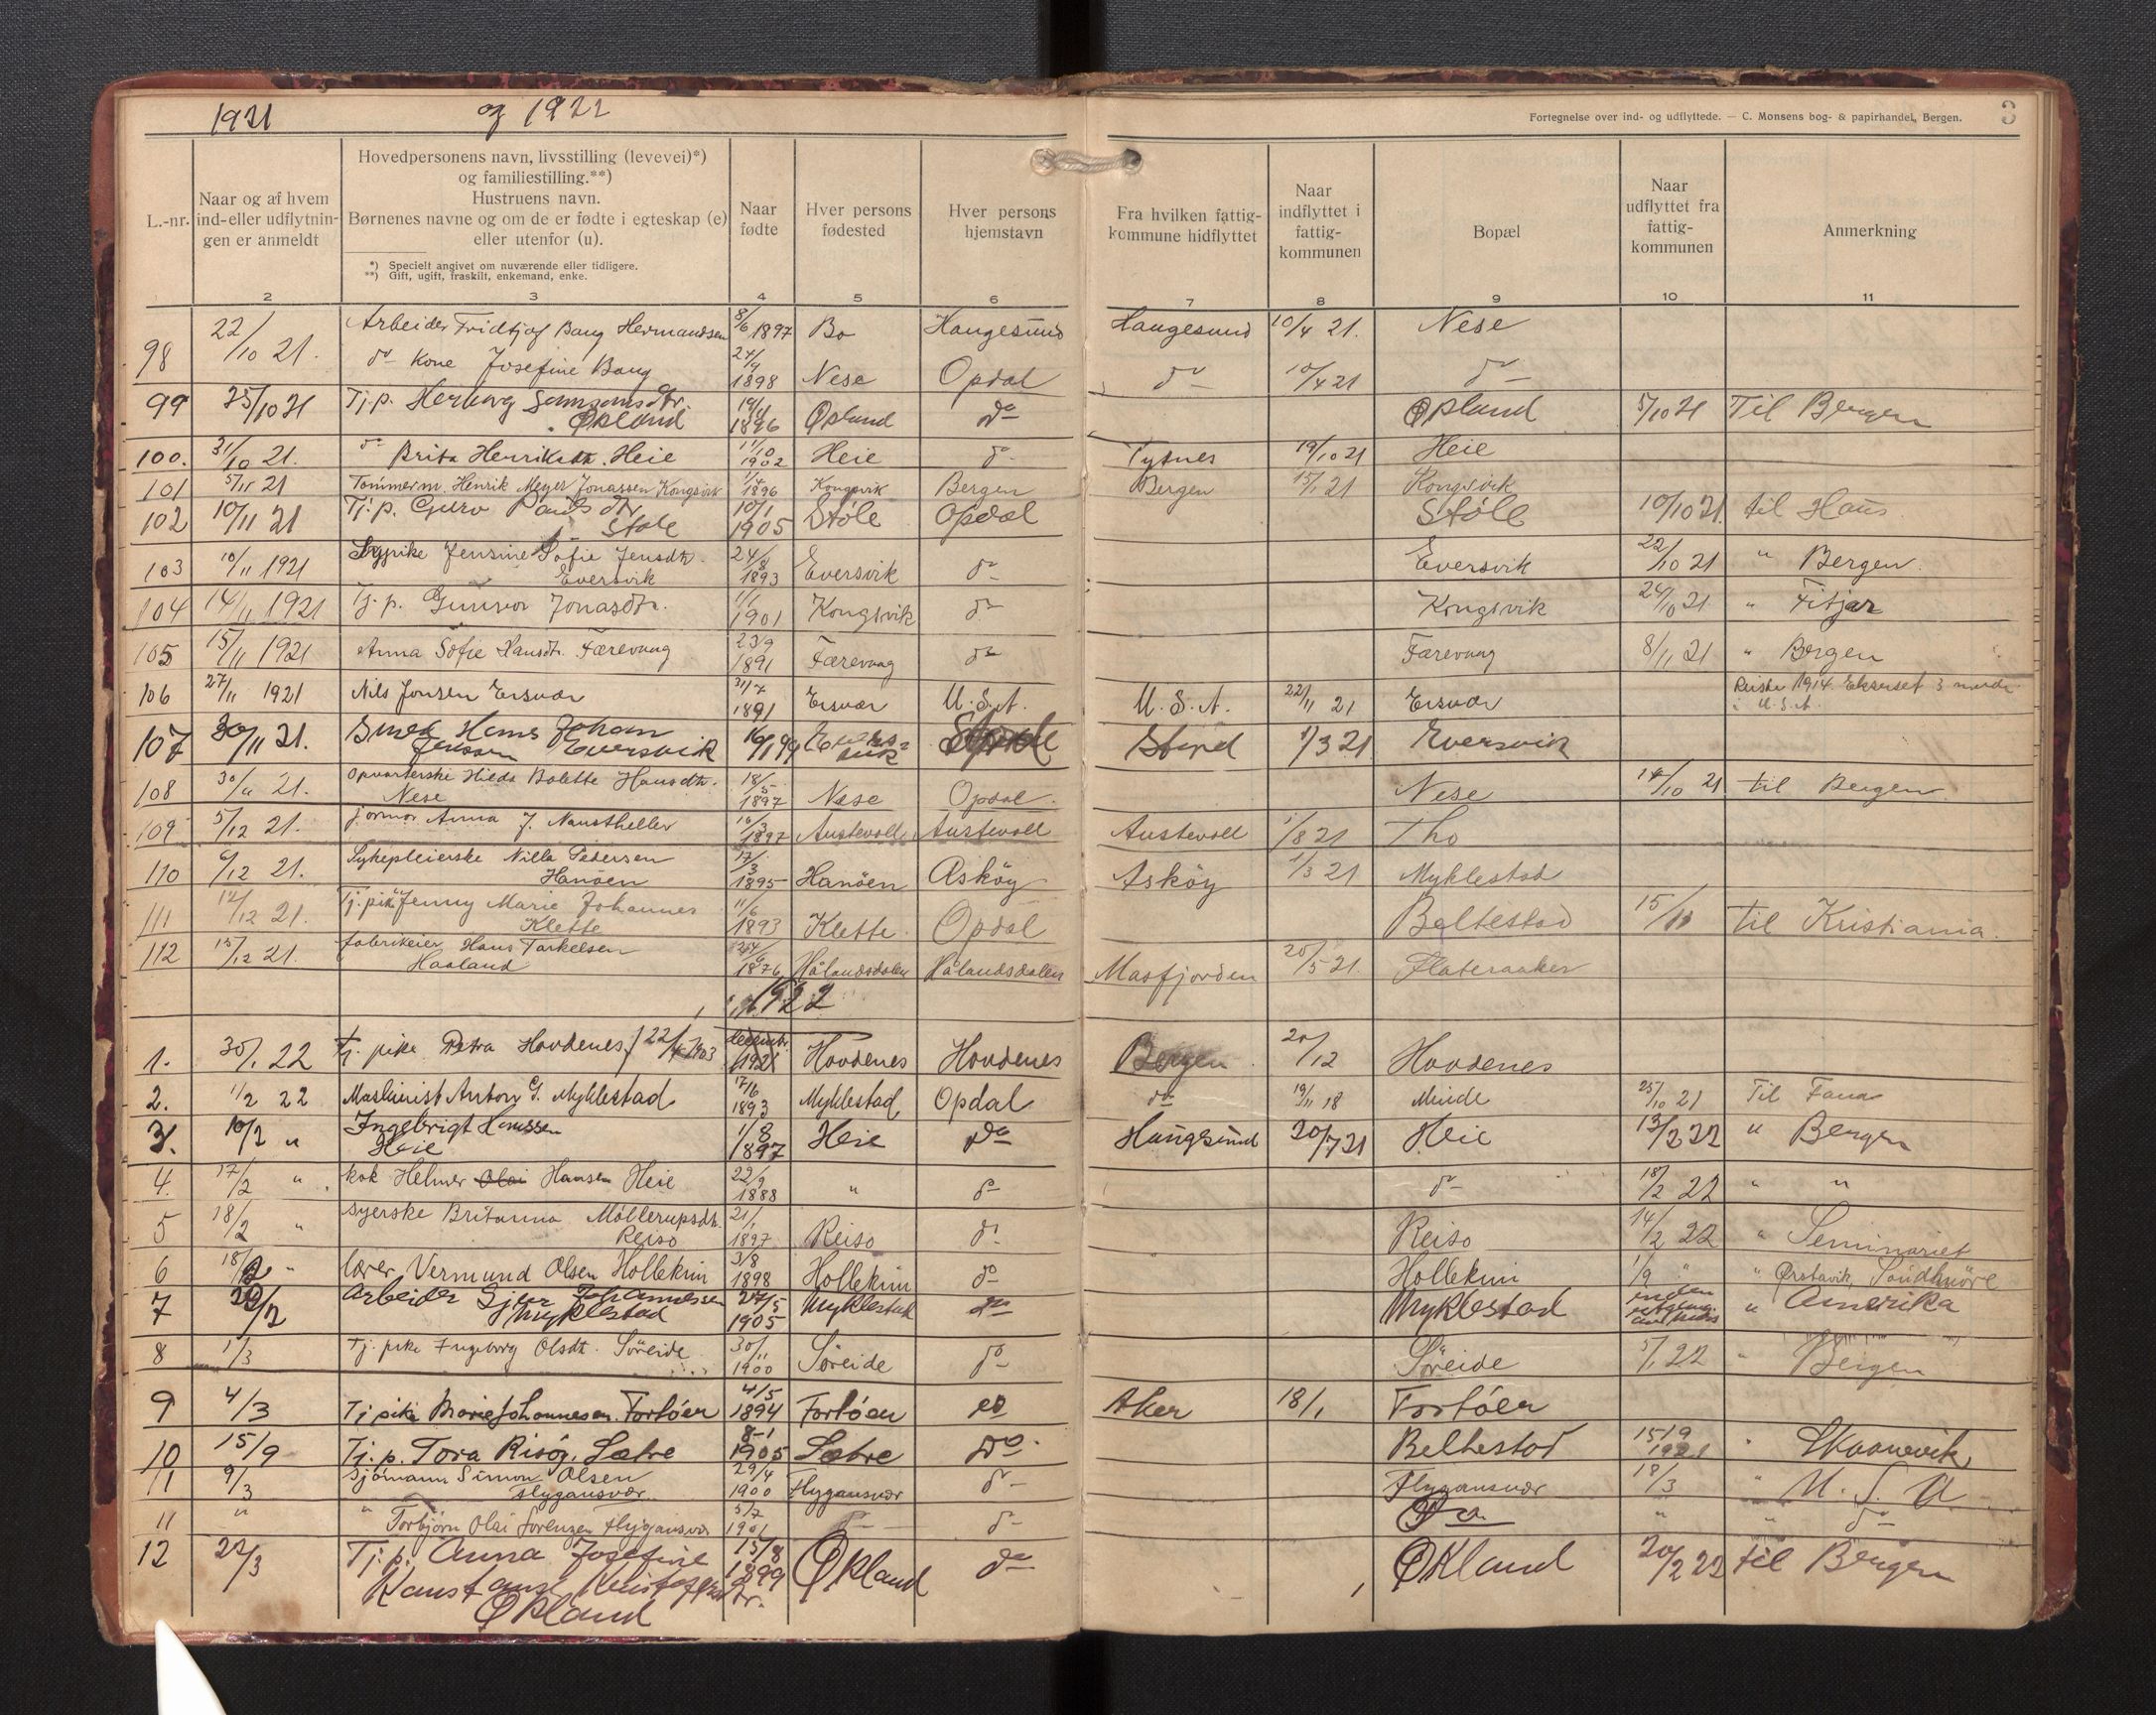 1921 og 1922
Fortegnelse over ind- og udflyttede. — C. Monsens bog- & papirhandel, Bergen. 3
L.-nr.
Naar og af hvem ind-eller udflytnin-gen er anmeldt
Hovedpersonens navn, livsstilling (levevei)*)
og familiestilling.**)
Hustruens navn.
Børnenes navne og om de er fødte i egteskap (e)
eller utenfor (u).
*) Specielt angivet om nuværende eller tidligere.
**) Gift, ugift, fraskilt, enkemand, enke.
Naar fødte
Hver persons fødested
Hver persons hjemstavn
Fra hvilken fattig-kommune hidflyttet
Naar indflyttet i fattig-kommunen
Bopæl
Naar udflyttet fra fattig-kommunen
Anmerkning
2 3 4 5 6 7 8 9 10 11
98 22/10 21. Arbeider Fridtjof Bang Hermandsen 8/6 1897 Bo Haugesund Haugesund 10/4 21. Nese
do Kone Josefine Bang 24/9 1898 Nese Opdal do 10/4 21 do
99 25/10 21 Tj.p. Herborg Samsonsdtr. Økland 19/4 1896 Økland do Økland 5/10 21 Til Bergen
100. 31/10 21. do Brita Henriksdtr. Heie 11/10 1902 Heie do Tysnes 19/10 21 Heie
101 5/11 21 Tømmerm. Henrik Meyer Jonassen Kongsvik 1/4 1896 Kongsvik Bergen Bergen 15/1 21 Kongsvik
102 10/11 21 Tj.p. Guro Pauls dtr Støle 10/1 1905 Støle Opdal Støle 10/10 21 til Haus
103 10/11 1921 Sypike Jensine Sofie Jensdtr. Eversvik 24/8 1893 Eversvik do Eversvik 22/10 21 " Bergen
104 14/11 1921 Tj. p. Gunvor Jonasdtr. 1/1 1901 Kongsvik do Kongsvik 24/10 21 " Fitjar
105 15/11 1921 Anna Sofie Hansdtr. Færevaag 23/9 1891 Færevaag do Færevaag 8/11 21 " Bergen
106 27/11 1921 Nils Jonsen Ersvær 31/7 1891 Ersvær U.S.A. U.S.A. 22/11 21 Ersvær Reiste 1914 Ekserset 3 mndr i U.S.A.
107 30/11 21. Smed Hans Johan Jenssen Eversvik 16/1 99 Eversvik Stord Stord 1/3 21 Eversvik
108 30/11 21. Opvarterske Hilda Bolette Hansdtr. Nese 18/5 1897 Nese Opdal Nese 14/10 21 til Bergen
109 5/12 21. Jormor Anna J. Naustheller 16/3 1897 Austevoll Austevoll Austevoll 1/8 21 Tho
110 6/12 21. Sykepleierske Nilla Pedersen Hanøen 17/3 1895 Hanøen Askøy Askøy 1/3 21 Myklestad
111 12/12 21. Tj. pike Jenny Marie Johannes Klette 11/6 1893 Klette Opdal Beltestad 15/11 til Kristiania.
112 15/12 21. fabrikeier Hans Tarkelsen Haaland 1876 Hålandsdalen Hålandsdalen Masfjorden 20/5 21. Flateraaker
1922
1. 30/1 22 tj. pike Petra Hovdenes 22/4 1903 1921 Hovdenes Hovdenes Bergen 20/12 Hovdenes
2. 1/2 22 Maskinist Anton G. Myklestad 17/6 1893 Myklestad Opdal do 19/11 18 Minde 25/10 21 Til Fana
3. 10/2 " Ingebrigt Hanssen Heie 1/8 1897 Heie do Haugesund 20/7 21 Heie 13/2 22 " Bergen
4. 17/2 " kok Helmer Olai Hansen Heie 22/9 1888 " do do 18/2 22 " "
5 18/2 " syerske Britanna Møllerupsdtr. Reiso 21/1 1897 Reiso do Reiso 14/2 22 " Seminariet
6 18/2 " lærer Vermund Olsen Hollekim 3/8 1898 Hollekim do Hollekim 1/9 " " Ørstavik, Søndmøre
7 20/2 Arbeider Sjur Johannessen Myklestad 27/5 1905 Myklestad do Myklestad " Amerika
8 1/3 Tj. pike Ingeborg Olsdtr. Søreide 30/11 1900 Søreide do Søreide 5/1 22 " Bergen
9 4/3 Tj pike Marie Johannesen Tortøer 4/5 1894 Tortøer do Aker 18/1 Tortøer
10 15/9 Tj. p. Tora Risøy, Sætre 8-1 1905 Sætre Do. Beltestad 15/9 1921 " Skaanevik
11 9/3 Sjømann Simon Olsen Flygansvær 29/4 1900 Flygansvær do Flygansvær 18/3 " U. S. A
11 " " Torbjørn Olai Sørensen Flygansvær 5/7 1901 do do Do. " " do
12 22/3 Tj. p. Anna Josefine Konstanse Kristoffersdtr. Økland 15/8 1899 Økland do Økland 20/2 22 til Bergen